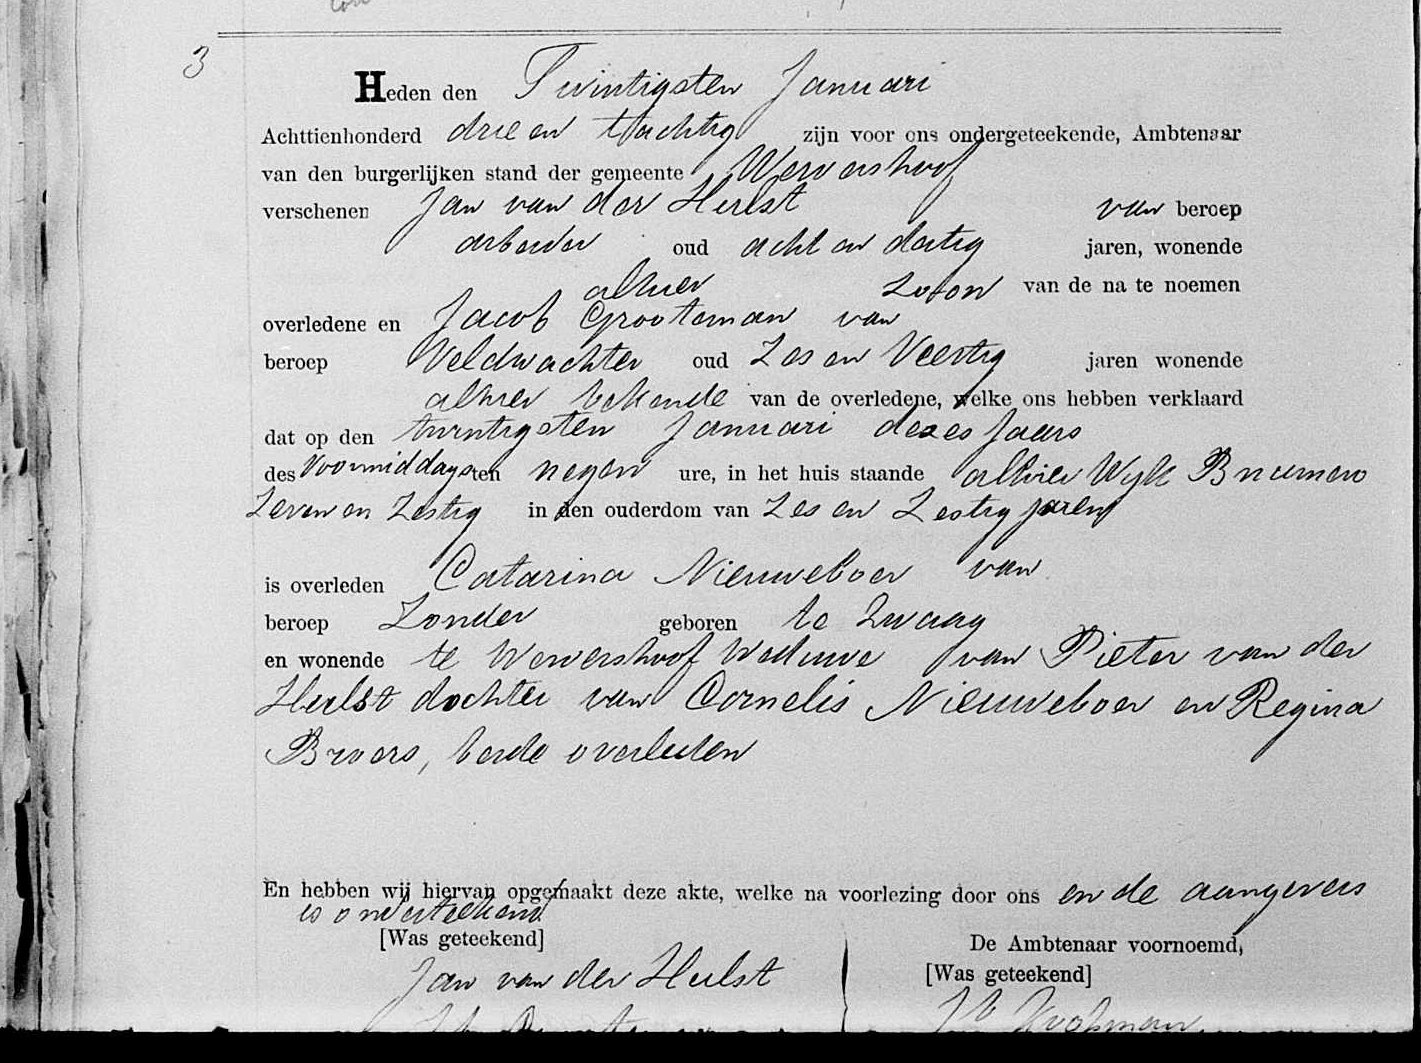 3
Heden den Twintigsten Januari
Achttienhonderd drie en tachtig zijn voor ons ondergeteekende, Ambtenaar
van den burgerlijken stand der gemeente Wervershoof
verschenen Jan van der Hulst van beroep
arbeider oud acht en dertig jaren, wonende
alhier Zoon van de na te noemen
overledene en Jacob Grooteman van
beroep Veldwachter oud Zes en Veertig jaren wonende
alhier bekende van de overledene, welke ons hebben verklaard
dat op den twintigsten Januari dezes Jaars
des Voormiddags ten negen ure, in het huis staande alhier Wijk B numero
Zeven en Zestig in den ouderdom van Zes en Zestig jaren
is overleden Catarina Nieuweboer van
beroep Zonder geboren te Zwaag
en wonende te Wervershoof Weduwe van Pieter van der
Hulst dochter van Cornelis Nieuweboer en Regina
Broers, beide overleden
En hebben wij hiervan opgemaakt deze akte, welke na voorlezing door ons en de aangevers
is onderteekend
[Was geteekend] De Ambtenaar voornoemd,
Jan van der Hulst [Was geteekend]